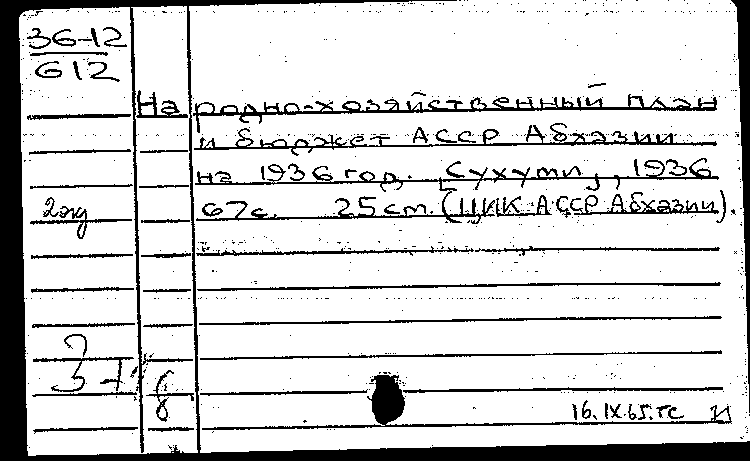 36-12
612
Народно-хозяйственный план
и бюджет АССР Абхазии
на 1936 год. [Сухуми], 1936
67с. 25 cm. (ЦИК АССР Абхазии).
2 экз
16.IX.65.